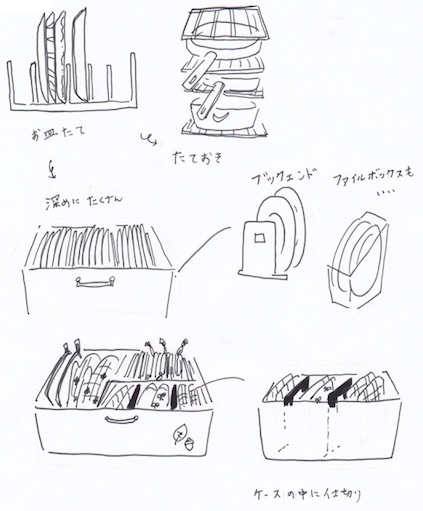 お皿たて
たておき
深めに たくさん
ブックエンド
ファイルボックスも
いい
ケースの中に仕切り